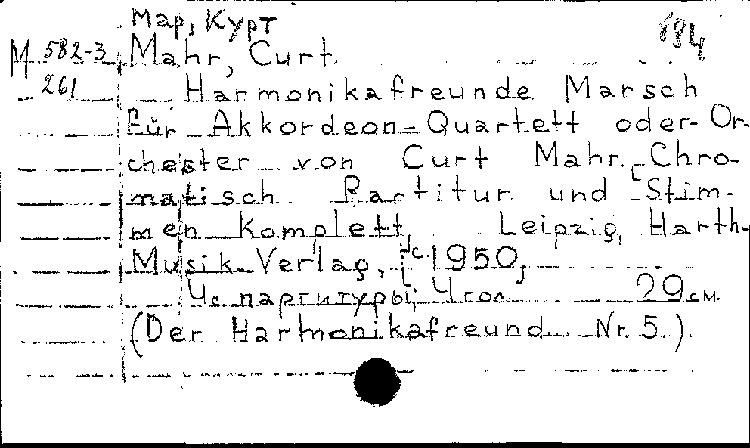 Мар, Курт
694
М 582-3 Mahr, Curt.
261 Harmonikafreunde Marsch
für Akkordeon-Quartett oder Or-
chester von Curt Mahr. Chro-
matisch. Partitur und [Stim-
men komplett, Leipzig, Harth-
Musik-Verlag, [с. 1950,]
4 с. партитуры, 4 гол. 29 см.
(Der Harmonikafreund. Nr. 5.).